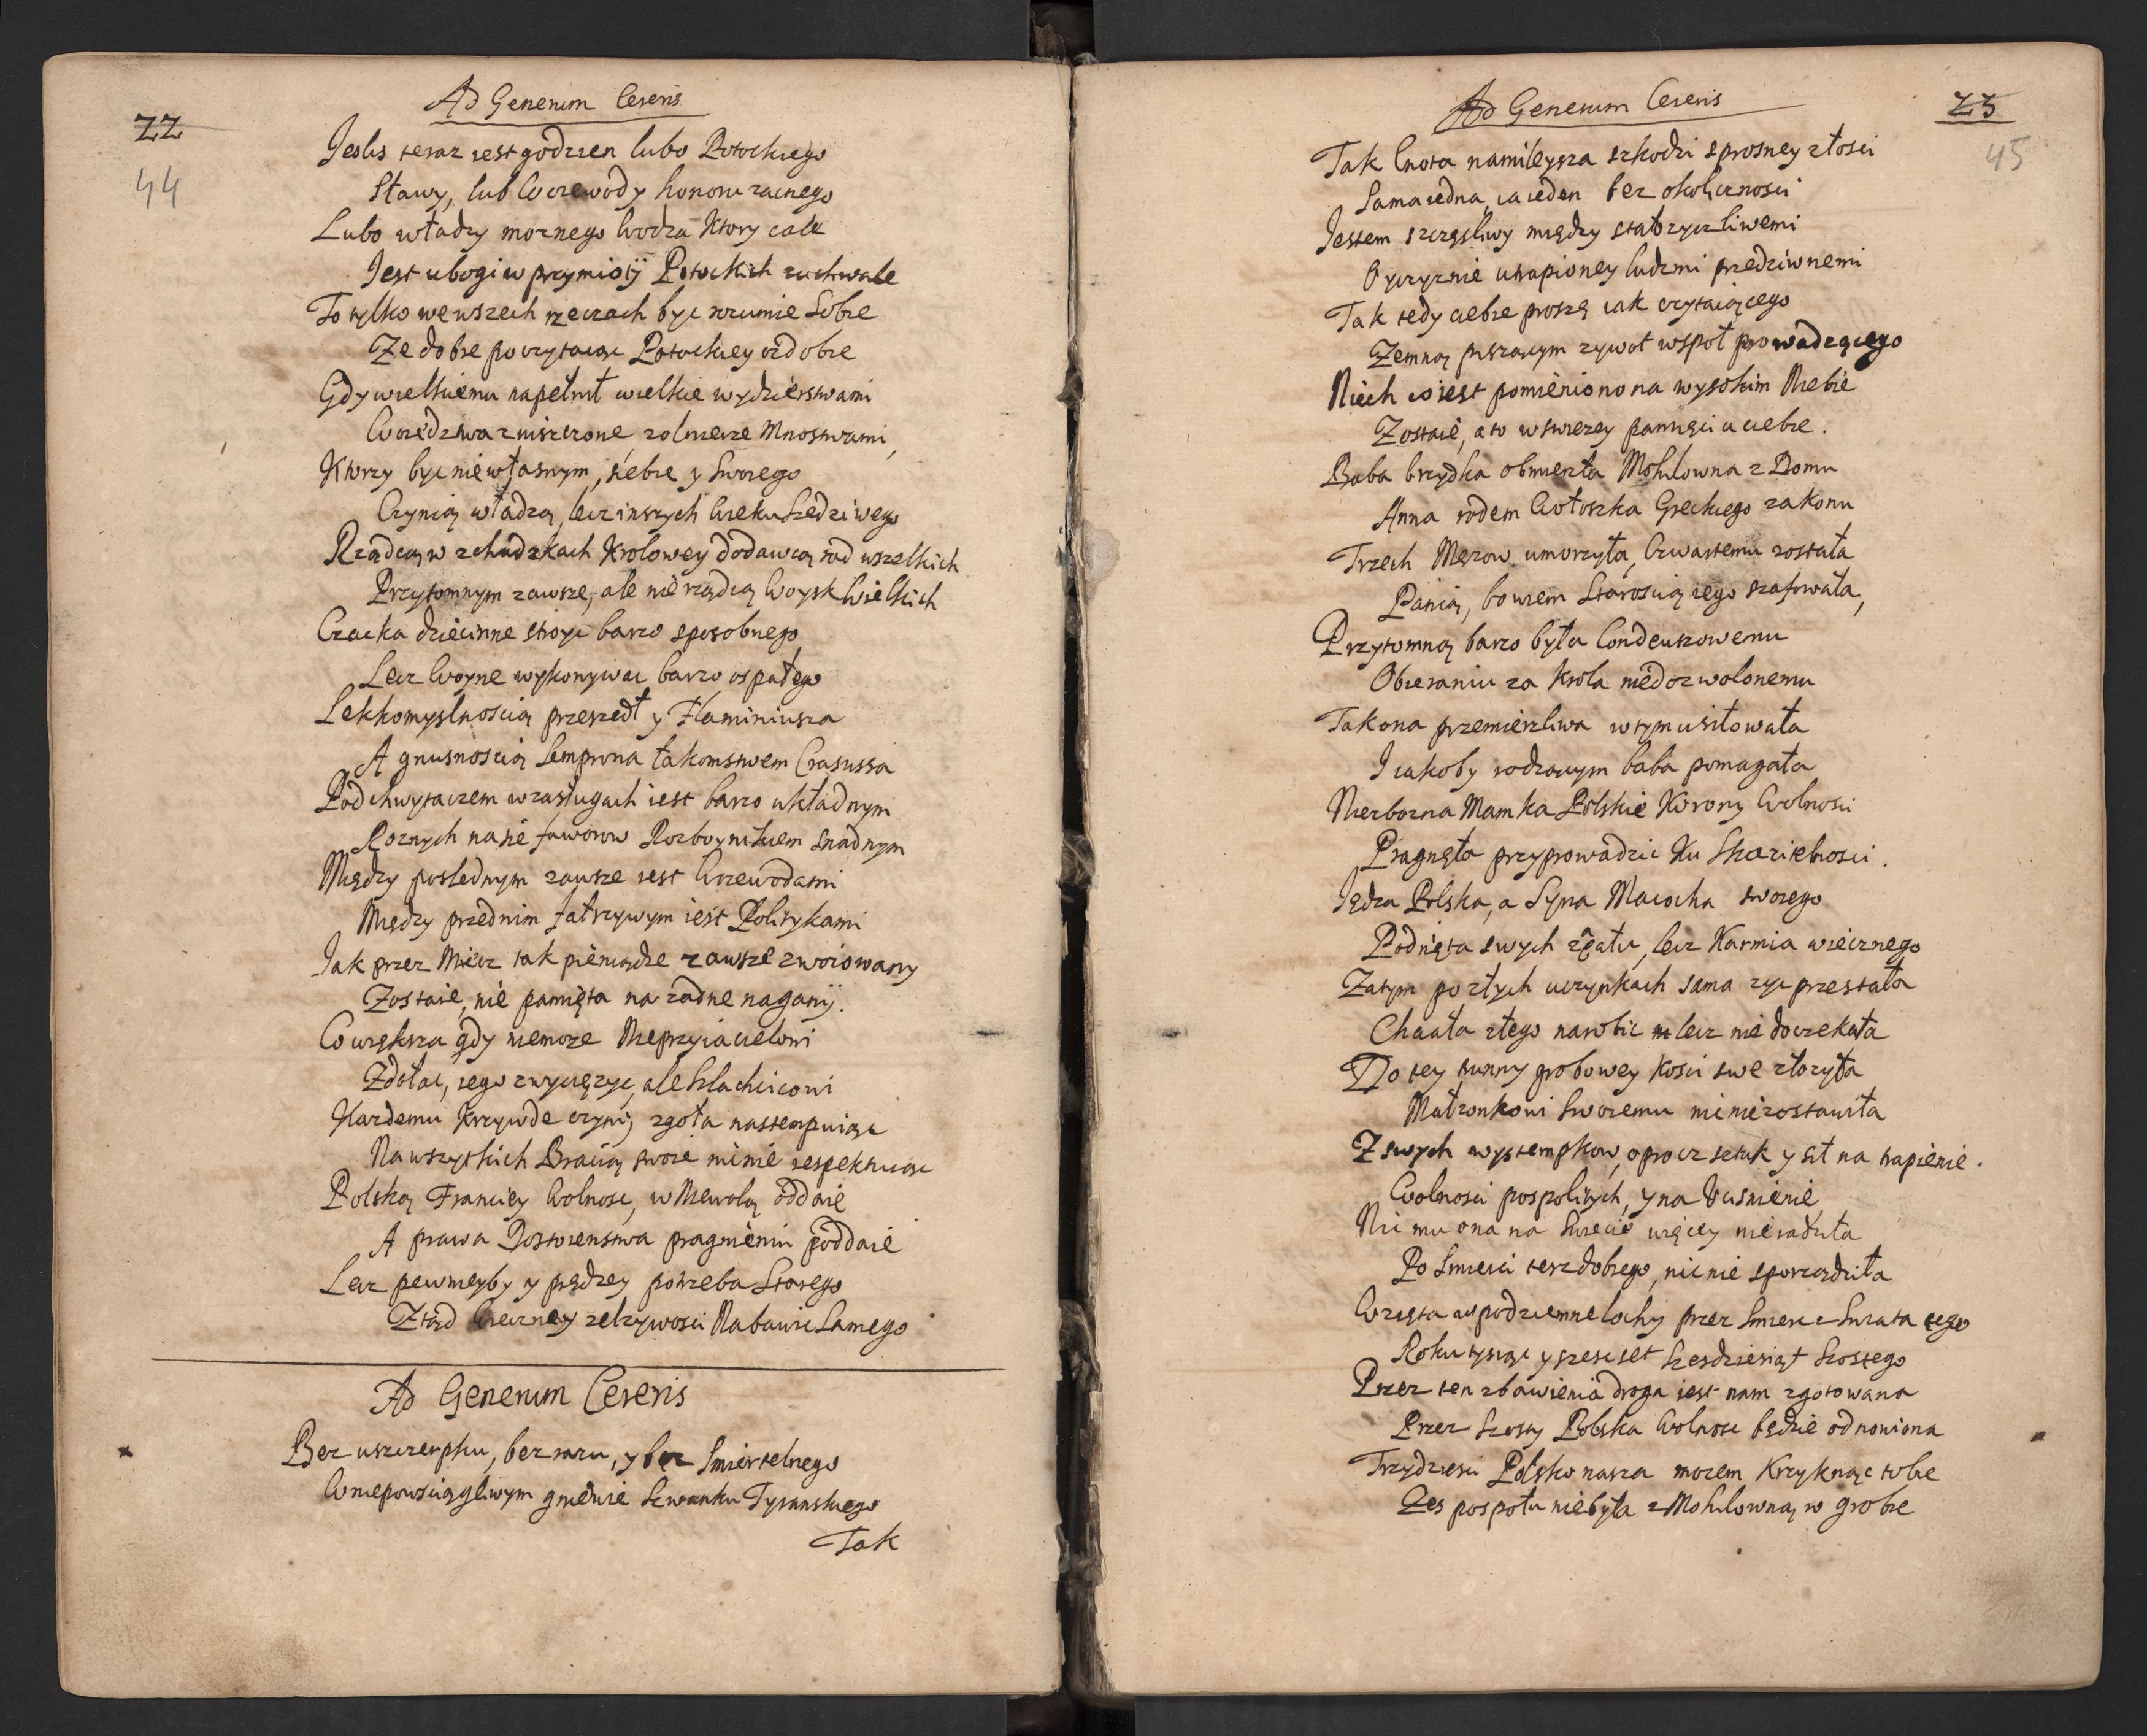 22
44
Ad Generum Cereris
Jeslis teraz iest godzien lubo Potockiego
Sławy, lub Woiewody honoru zacnego
Lubo władzy moznego Wodza Ktory cale
Jest ubogi w przymioty Potockich zuchwale
To tylko we wszech rzeczach byc rozumie Sobie
Ze dobre poczytaiąc Potockiey ozdobie
Gdy wielkiemu napełnił wielkie wydzierstwami
Woiedztwa zniszczone zolnierze Mnostwami,
Ktorzy byc nie własnym, siebie y Swoiego
Czynią władzą, lecz inszych Wieku Szedziwego
Rządcą w schadzkach Krolowey dodawcą rad wszelkich
Przytomnym zawsze, ale nie rządcą Woysk Wielkich
Czacka dziecinne stroic barzo sposobnego
Lecz Woyne wykonywac barzo ospałego
Lekkomyslnoscią przeszedł y Flaminiusza
A gnusnoscią Semprona łakomstwem Crasussa
Podchwytaczem w zasługach iest barzo układnym
Roznych na sie faworow Rozboynikiem snadnym
Między poslednym zawsze iest Woiewodami
Między przednim fałszywym iest Politykami
Jak przez Miecz tak pieniądze zawsze zwoiowany
Zostaie, nie pamięta na zadne nagany.
Co większa gdy niemoze Nieprzyiacielowi
Zdołac, iego zwyciężyc, ale Szlachcicowi
Hardemu Krzywde czyni, zgoła nastempuiąc
Na wszytkich Bracią swoie nic nie respektuiąc
Polską Franciey Wolnosc, w Niewolą oddaie
A prawa Dostoienstwa pragnieniu poddaie
Lecz pewnieyby y prędzey potrzeba Starego
Ztąd Wieczney zelzywosci Nabawi Samego
Ad Generum Cereris
Bez uszczerpku, bez razu, y bez Smiertelnego
W niepowsciągliwym gniewie Szwanku Tyranskiego
Tak
Ad Generum Cereris
23
45
Tak Cnota namileysza szkodzi sprosney złosci
Sama iedna, ia ieden bez okolicznosci
Jestem szczęsliwy między stałozyczliwemi
Oyczyznie utrapioney ludzmi przedziwnemi
Tak tedy ciebie proszę iak czytaiącego
Zemną piszącym zywot wspoł prowadzącego
Niech co iest pomieniono na wysokim Niebie
Zostaie, a to w swiezey pamięci u ciebie.
Baba brzydka obmierzła Mohilowna z Domu
Anna rodem Wołoszka Greckiego zakonu
Trzech Męzow umorzyła, Czwartemu została
Panią, bowiem Staroscią iego szafowała,
Przytomną barzo była Condeuszowemu
Obieraniu za Krola niedozwolonemu
Tak ona przemierzliwa w tym usiłowała
I iakoby rodzącym baba pomagała
Niezbozna Mamka Polskie Korony Wolnosci
Pragnęła przyprowadzic Ku Skazitelnosci.
Jędza Polska, a Syna Macocha swoiego
Podnięta swych lecz Karmia wiecznego
Zatym po złych uczynkach sama zyc przestała
Chciała złego narobic lecz nie doczekała
Do tey trunny grobowey Kosci swe złozyła
Małzonkowi Swoiemu nic nie zostawiła
Z swych wystempkow, oprocz sztuk y sił na trapienie.
Wolnosci pospolitych, y na Usmienie
Nic mu ona na Swiecie więcey nie radziła
Po Smierci tesz dobrego, nic nie sporządziła
Wzięta w podziemne lochy przez Smierc z Swiata tego
Roku tysiąc y szescset Szesdziesiąt Szostego
Przez ten zbawienia droga iest nam zgotowana
Przez Szosty Polska Wolnosc będzie odnowiona
Trzydziesci Polsko nasza mozem Krzyknąc tobie
Zes pospołu nie była z Mohilowną w grobie